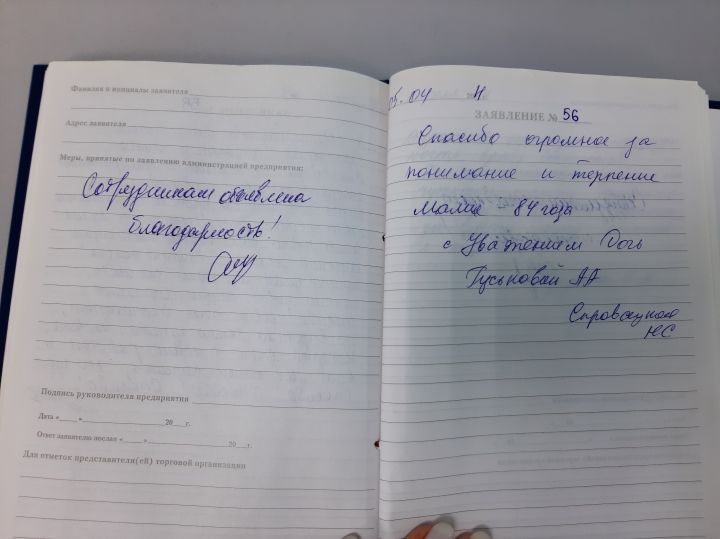 Фамилия и инициалы заявителя
Адрес заявителя
Меры, принятые по заявлению администрацией предприятия:
Сотрудникам объявлена
благодарность!
Подпись руководителя предприятия
Дата «____»____________20___г.
Ответ заявителю послан «____»____________20___г.
Для отметок представителя(ей) торговой организации
05.04
ЗАЯВЛЕНИЕ № 56
Спасибо огромное за
понимание и терпение
Маме 84 года
с Уважением Дочь
Гуськовой АА
НС